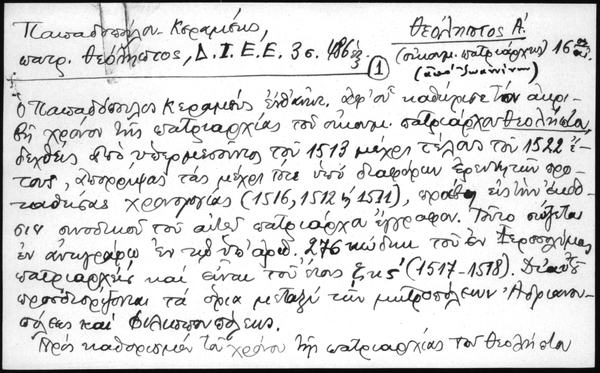 Παπαδόπουλου-Κεραμέως,
πατρ. Θεόληπτος, Δ.Ι.Ε.Ε. 3 σ. 486 ἑξ.
Θεόληπτος Α΄
(οἰκουμ. πατριάρχης) 16ου αἰ.
(ἀπὸ Ἰωαννίνων)
1
Ὁ Παπαδόπουλος Κεραμεὺς ἐνθ' ἀνωτ. ἀφ' οὗ καθώρισε τὸν ἀκρι-
βῆ χρόνον τῆς πατριαρχίας τοῦ οἰκουμ. πατριάρχου Θεολήπτου,
δεχθεὶς ἀπὸ τοῦ 1513 μέχρι τέλους τοῦ 1522 ἔ-
τους, ἀπορρίψας τὰς μέχρι τότε ὑπὸ διαφόρων ἐρευνητῶν προ-
ταθείσας χρονολογίας (1516, 1512 ἢ 1511), προβαίνει εἰς τὴν ἔκδο-
σιν συνοδικοῦ τοῦ αὐτοῦ πατριάρχου ἐγγράφου. Τοῦτο σῴζεται
ἐν ἀντιγράφῳ ἐν τῷ ὑπ' ἀριθ. 276 κώδικι τοῦ ἐν Ἱεροσολύμοις
πατριαρχείου καὶ εἶναι τοῦ ἔτους ζκς΄ (1517-1518). Δι' αὐτοῦ
προσδιορίζονται τὰ ὅρια μεταξὺ τῶν μητροπόλεων Ἀδριανου-
πόλεως καὶ Φιλιππουπόλεως.
Πρὸς καθορισμὸν τοῦ χρόνου τῆς πατριαρχίας τοῦ Θεολήπτου